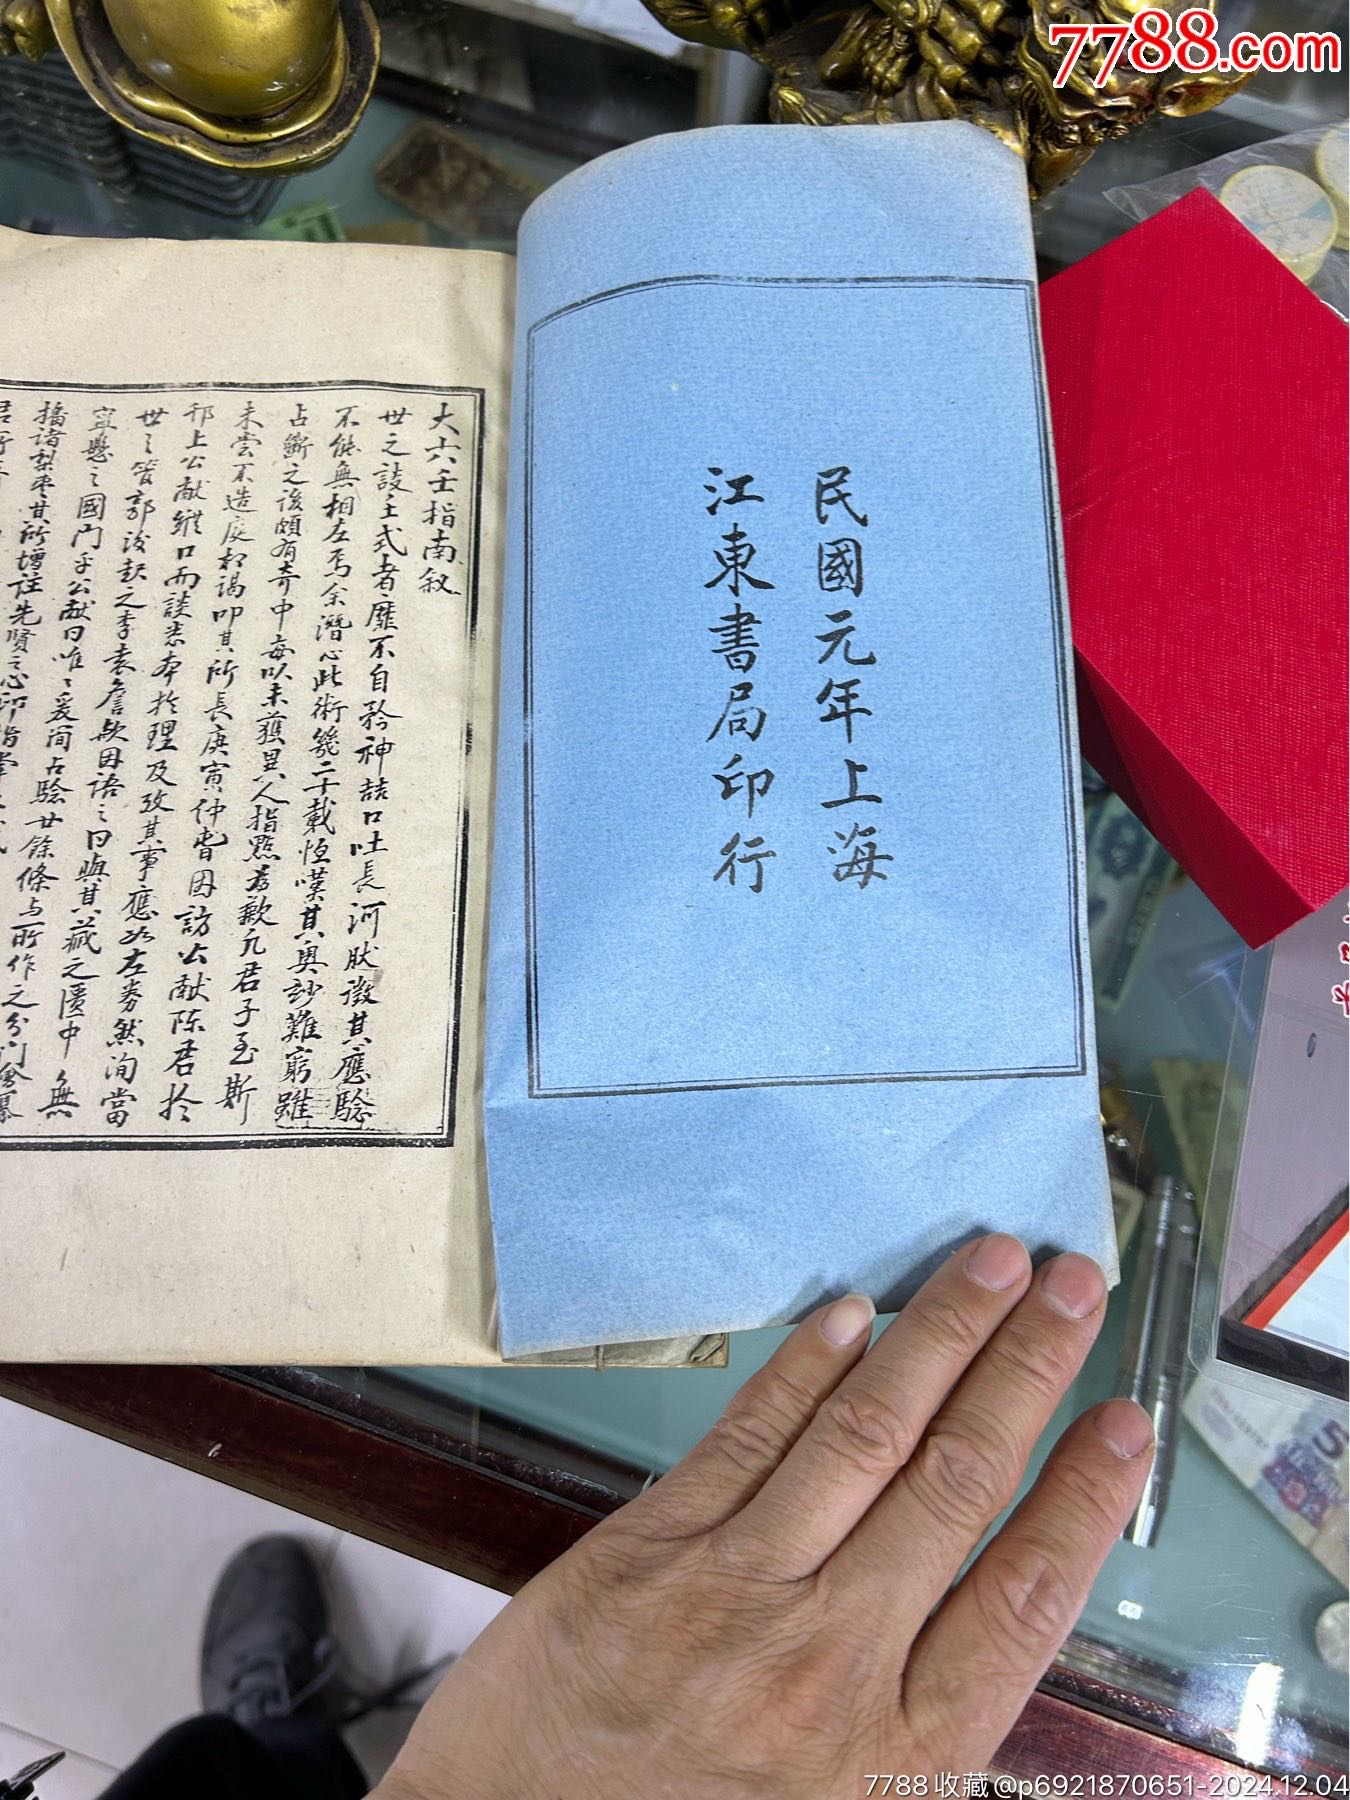 7788.com
民國元年上海
江東書局印行
大六壬指南叙
世之談壬式者靡不自矜神喆口吐長河肰徵其應驗
不能無相左焉余潛心此術幾二十載恒嘆其奧玅難窮雖
占斷之後頗有奇中每以未獲異人指點為歉凢君子至斯
未嘗不造庭相謁叩其所長庚寅仲昔因訪公献陈君扵
邗上公献縱口而談悉本扵理及攷其事應如左券然洵當
世之管郭後起之李袁詹欤因語之曰與其藏之匱中無
寧懸之國门乎公献曰唯唯爰间占驗廿餘條与所作之分门會纂
播諸梨枣其所增註先賢之心印指掌
7788收藏@p6921870651-2024.12.04